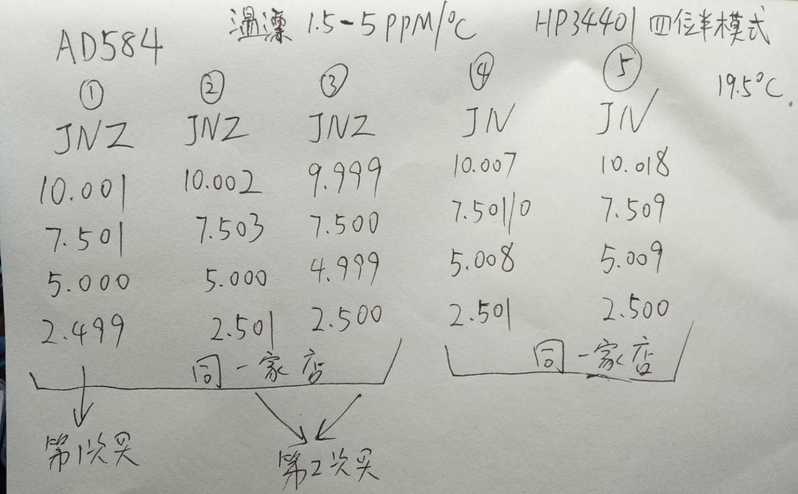 AD584 温漂 1.5-5PPM/℃ HP34401 四位半模式
19.5℃.
① ② ③ ④ ⑤
JNZ JNZ JNZ JN JN
10.001 10.002 9.999 10.007 10.018
7.501 7.503 7.500 7.501/0 7.509
5.000 5.000 4.999 5.008 5.009
2.499 2.501 2.500 2.501 2.500
同一家店 同一家店
第1次买 第2次买